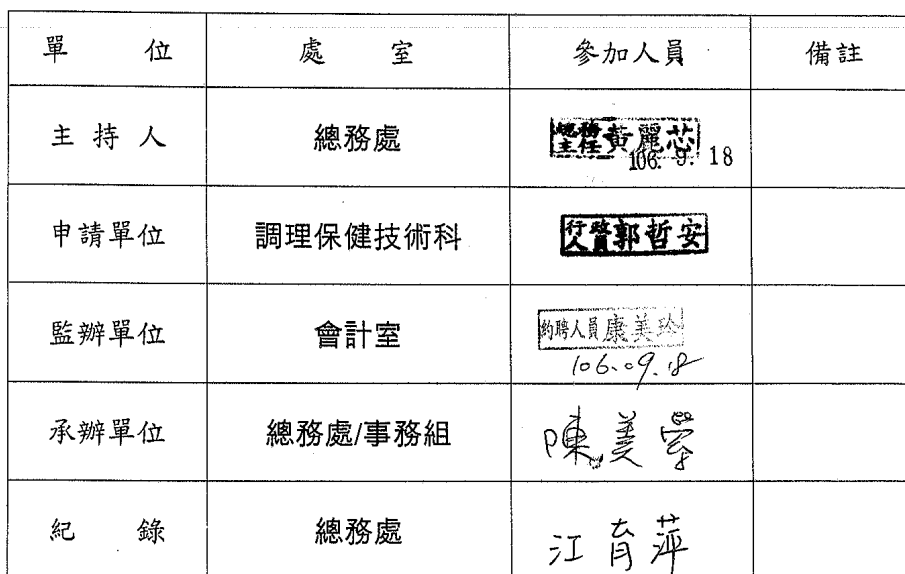 單 位 處 室 參加人員 備註
主 持 人 總務處 總務主任 黃麗芯
106. 9. 18
申請單位 調理保健技術科 行政人員 郭哲安
監辦單位 會計室 約聘人員康美珍
106.09.18
承辦單位 總務處/事務組 陳美
紀 錄 總務處 江育萍